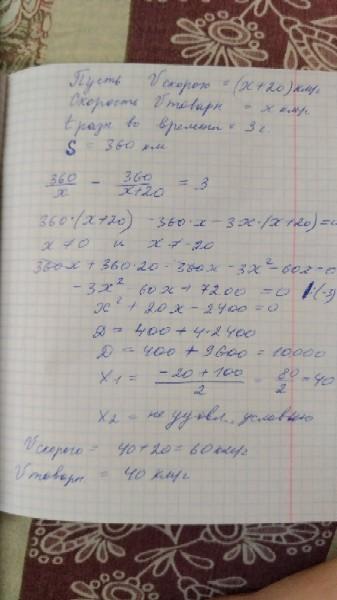 Пусть Vскорого = (x+20) км/ч
Скорость Vтоварн = x км/ч
t разн во времени = 3 ч
S = 360 км
360/x - 360/(x+20) = 3
360·(x+20) - 360·x - 3x·(x+20) = 0
x ≠ 0 и x ≠ -20
360x + 360·20 - 360x - 3x² - 60x = 0
-3x² - 60x + 7200 = 0 |:(-3)
x² + 20x - 2400 = 0
D = 400 + 4·2400
D = 400 + 9600 = 10000
x₁ = (-20 + 100)/2 = 80/2 = 40
x₂ = не удовл. условию
Vскорого = 40+20 = 60 км/ч
Vтоварн = 40 км/ч